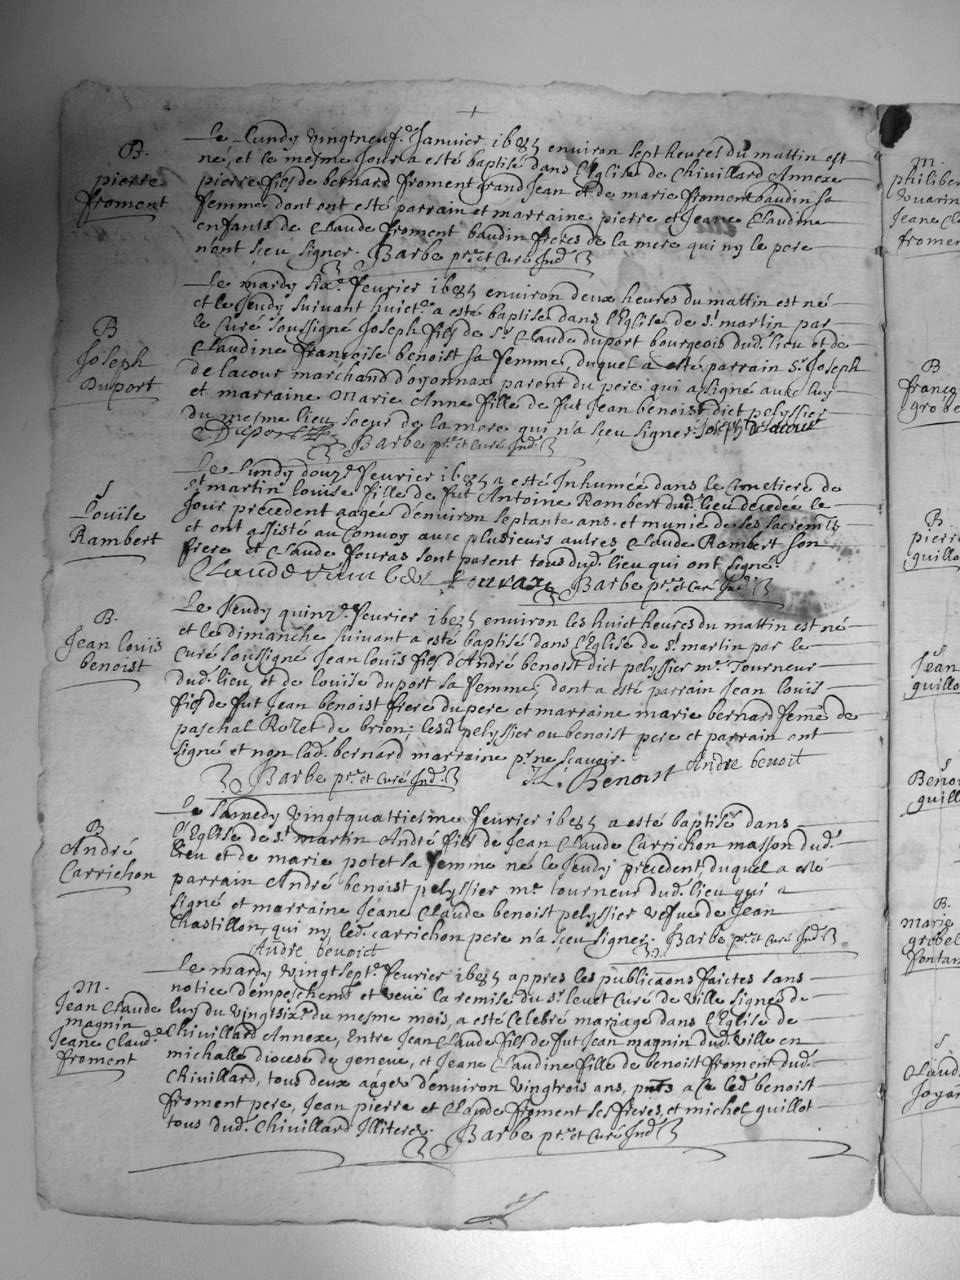 B.
pierre
froment
Le Lundy vingtneuf.e Janvier 1685 environ sept heures du mattin est
né, et le mesme Jour a esté baptisé dans l'Eglise de Chivillard Annexe
pierre fils de bernard froment grand Jean et de marie froment baudin sa
femme dont ont esté parrain et marraine pierre et Jeane Claudine
enfants de Claude froment baudin freres de la mere qui ny le pere
nont sceu signer. Barbe p.re et Curé Ind.
B
Joseph
Duport
Le mardy six.e fevrier 1685 environ deux heures du mattin est né
et le Jeudy suivant huict.e a esté baptisé dans l'Eglise de s.t martin par
le Curé soussigné Joseph fils de S.r Claude duport bourgeois dud. lieu et de
Claudine françoise benoist sa femme, duquel a esté parrain s.r Joseph
de lacour marchand d'oyonnax parent du pere qui a signé avec luy
et marraine Marie Anne fille de fut Jean benoist dict pelyssier
du mesme lieu soeur de la mere qui n'a sceu signer. Joseph delacour
Duport Barbe p.re et Curé Ind.
S
Louïse
Rambert
Le Lundy douz.e fevrier 1685 a esté Inhumée dans le Cimetiere de
s.t martin Louïse fille de fut Antoine Rambert dud. lieu decedée le
Jour precedent aagée d'environ septante ans. et munie de ses sacrem.ts
et ont assisté au Convoy avec plusieurs autres Claude Rambert son
frere et Claude fouras sont parent tous dud. lieu qui ont signé.
Claude Barbe p.re et Curé Ind.
B.
Jean Louïs
benoist
Le Jeudy quinz.e fevrier 1685 environ les huict heures du mattin est né
et le dimanche suivant a esté baptisé dans l'Eglise de s.t martin par le
Curé soussigné Jean Louïs fils d'André benoist dict pelyssier m.e Tourneur
dud. lieu et de Louïse duport sa femme, dont a esté parrain Jean Louïs
fils de fut Jean benoist frere du pere et marraine marie bernard feme de
paschal Rozet de brion; lesd. pelyssier ou benoist pere et parrain ont
signé et non lad. bernard marraine p.r ne scavoir.
Barbe p.re et Curé Ind. J.L. Benoist André benoit
B
André
Carrichon
Le samedy vingtquattriesme fevrier 1685 a esté baptisé dans
l'Eglise de s.t martin André fils de Jean Claude Carrichon masson dud.
lieu et de marie potet sa femme né le Jeudy precedent, duquel a esté
parrain André benoist pelyssier m.e tourneur dud. lieu qui a
signé et marraine Jeane Claude benoist pelyssier vefue de Jean
Chastillon, qui ny led. carrichon pere n'a sceu signer. Barbe p.re et Curé Ind.
André benoict
M.
Jean Claude
magnin
Jeane Claud.e
froment
Le mardy vingtsept.e fevrier 1685 appres les publicaons faictes sans
notice d'empeschem.t et veüe la remise du s.r levet Curé de ville signée de
luy du vingtsix.e du mesme mois, a esté Celebré mariage dans l'Eglise de
Chivillard Annexe, Entre Jean Claude fils de fut Jean magnin dud. ville en
michalle diocese de geneve, et Jeane Claudine fille de benoist froment dud.
Chivillard, tous deux aagés d'environ vingtrois ans, pnts a ce led. benoist
froment pere, Jean pierre et Claude froment ses freres, et michel guillot
tous dud. Chivillard Illiteres. Barbe p.re et Curé Ind.
M.
philiber
Jeane Cl
fromen
B
franço
grobe
B.
pierr
guillo
S
Jean
guillo
S
Beno
guill
B.
marie
grobel
fontan
S
Claud
Joyar